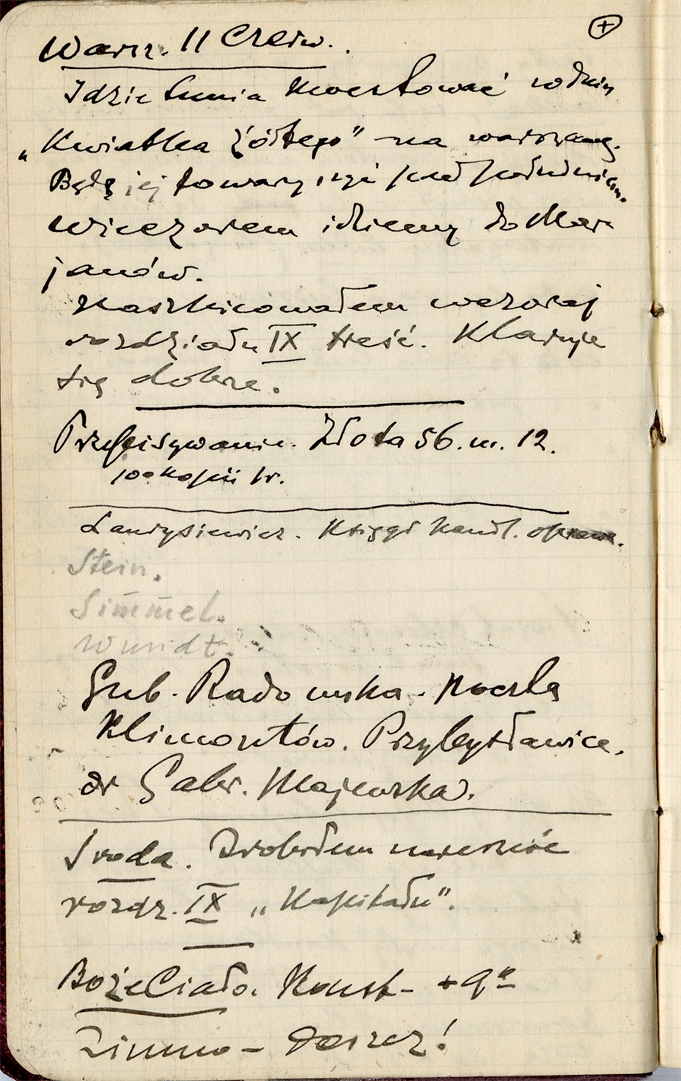 +
Warsz. 11 Czerw.
Idzie Lunia kwestować
„Kwiatka żółtego" na
Będę jej towarzyszyć przed południem.
Wieczorem idziemy do Mar
janów.
Naszkicowałem wczoraj
rozdziału IX treść. Klaruje
się dobrze.
Przepisywanie. Złota 56. m. 12.
100 kopii
Księgi handl.
Stein.
Simmel.
Wundt.
Gub. Radomska. Poczta
Klimontów. Przybysławice.
dr Gabr. Majewska.
Środa. Zrobiłem nareszcie
rozdz. IX „Kapitału".
Boże Ciało. + 9°
Zimno – deszcz!